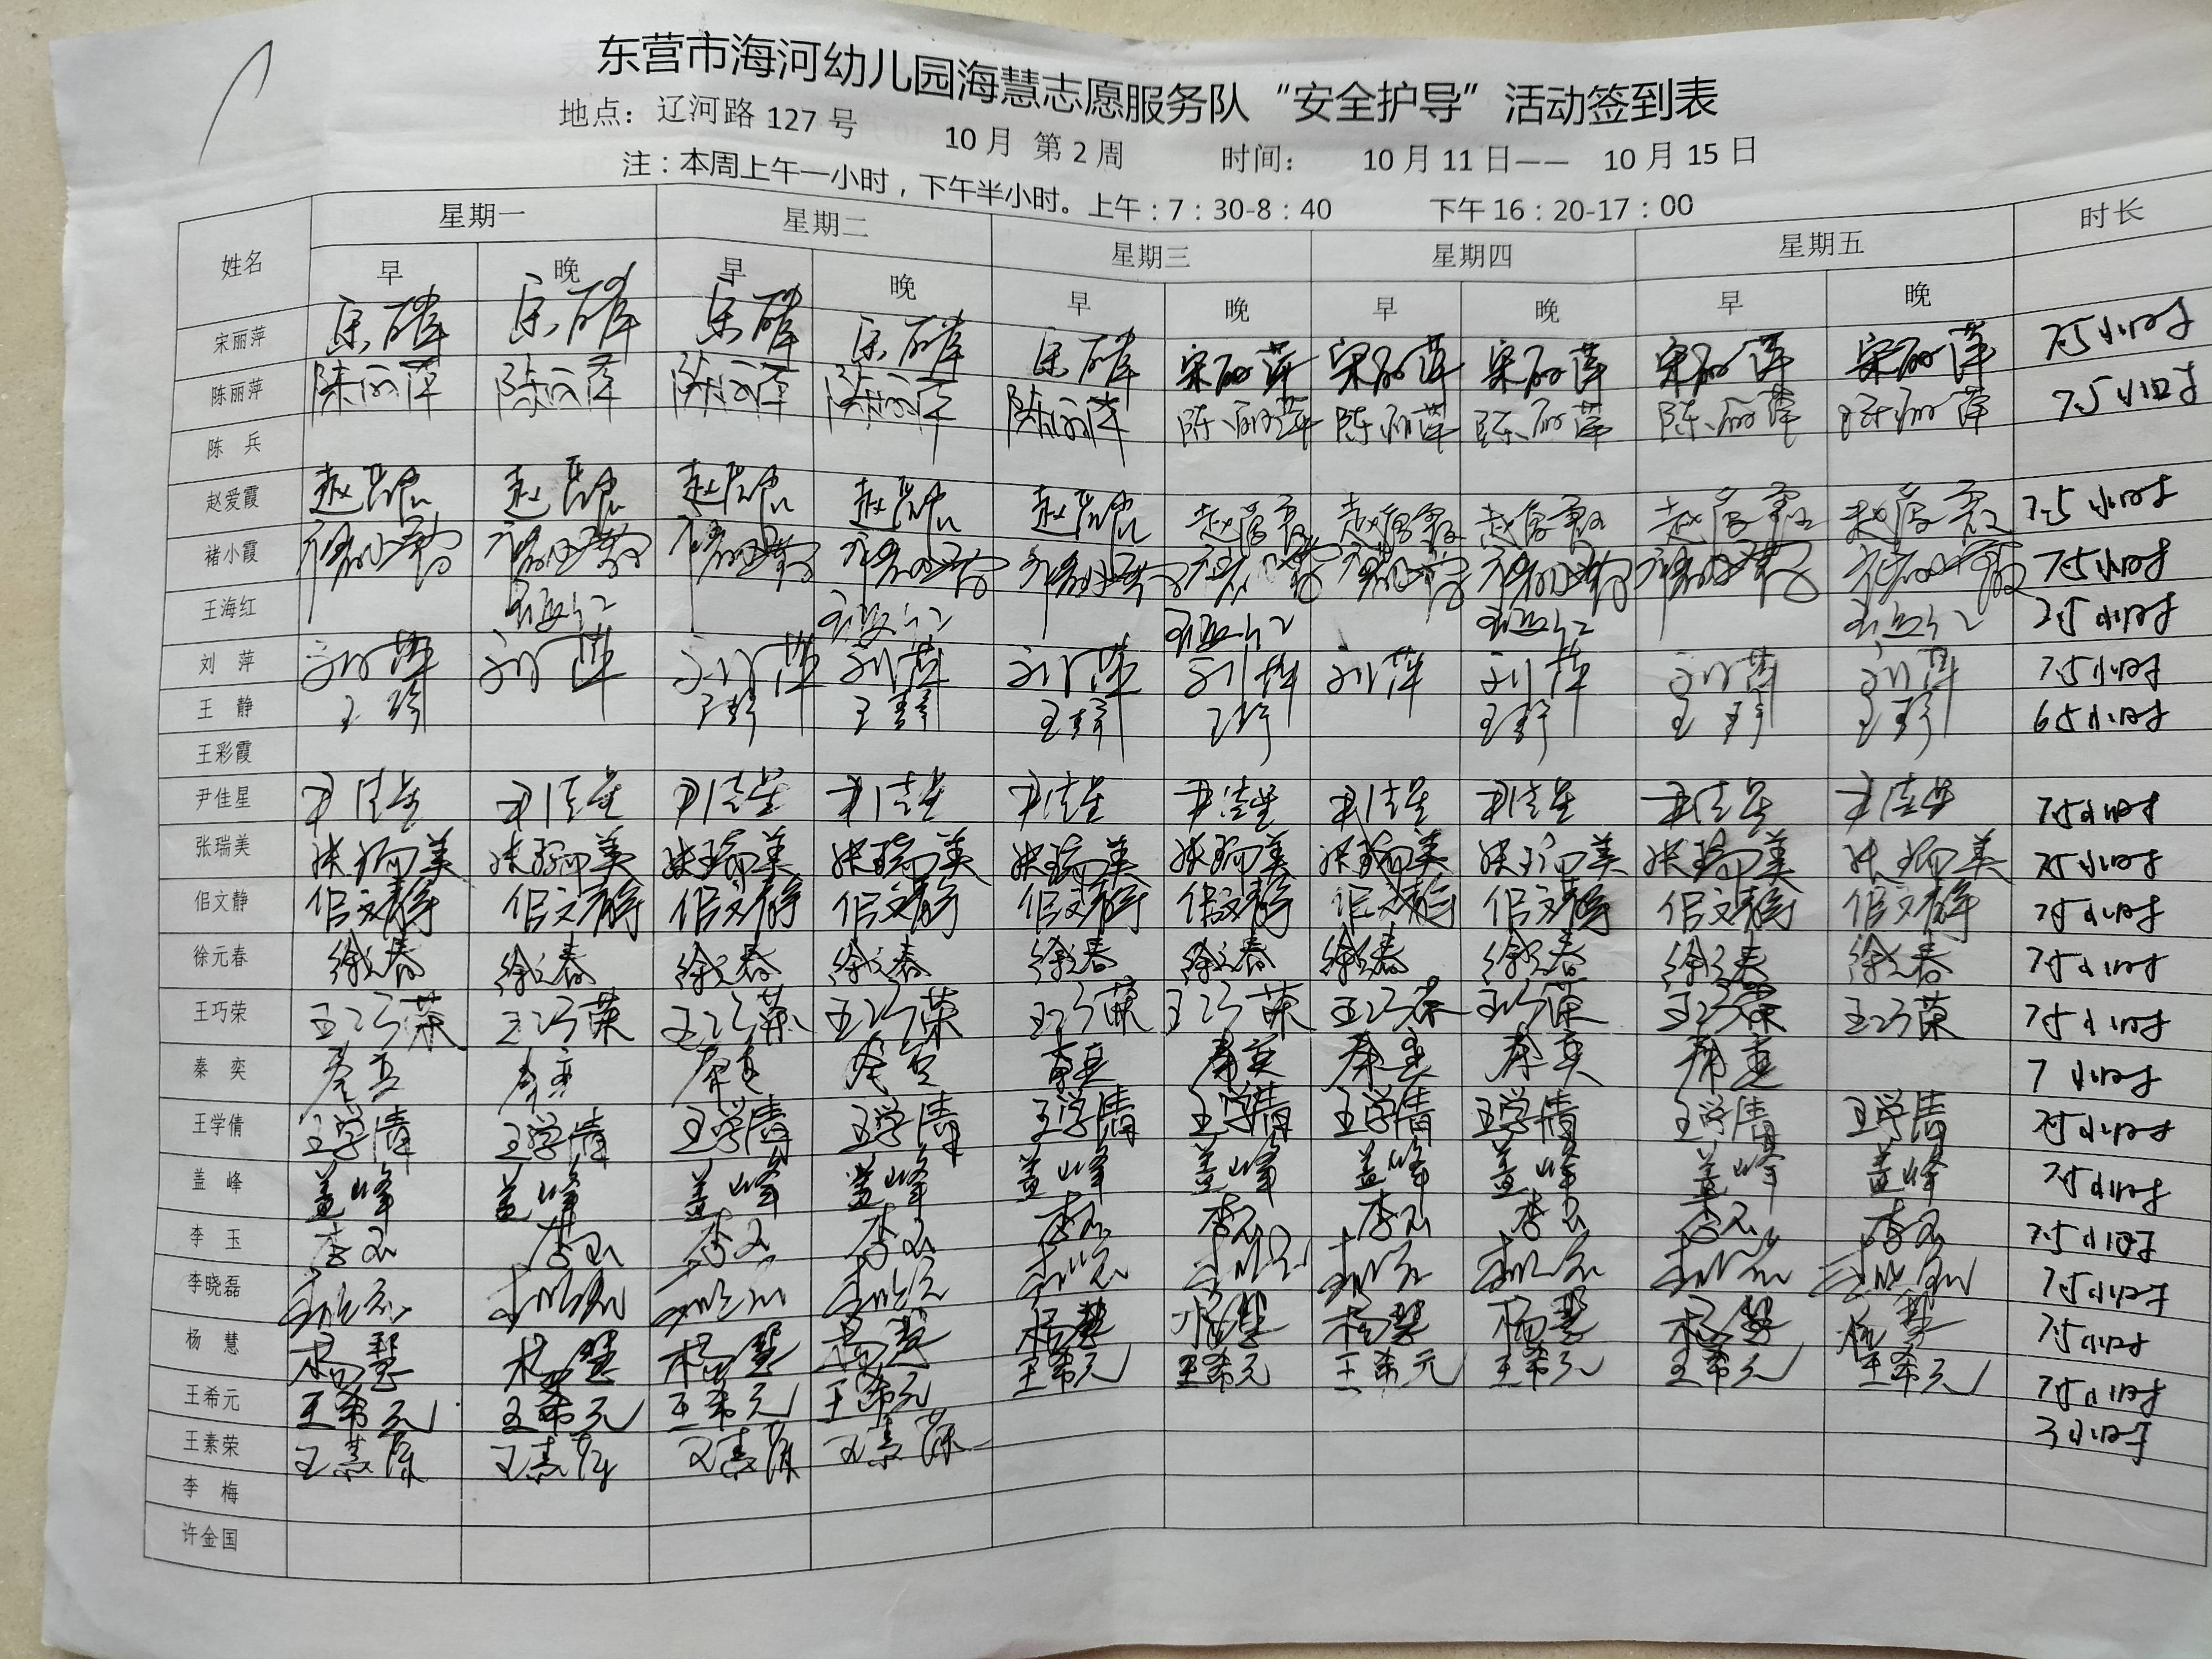 东营市海河幼儿园海慧志愿服务队“安全护导”活动签到表
地点：辽河路 127 号 10 月 第 2 周 时间： 10 月 11 日—— 10 月 15 日
注：本周上午一小时，下午半小时。上午：7：30-8：40 下午 16：20-17：00
姓名 星期一 星期二 星期三 星期四 星期五 时长
早 晚 早 晚 早 晚 早 晚 早 晚
宋丽萍 宋丽萍 宋丽萍 宋丽萍 宋丽萍 宋丽萍 宋丽萍 宋丽萍 宋丽萍 宋丽萍 宋丽萍 7.5小时
陈丽萍 陈丽萍 陈丽萍 陈丽萍 陈丽萍 陈丽萍 陈丽萍 陈丽萍 陈丽萍 陈丽萍 陈丽萍 7.5小时
陈 兵
赵爱霞 赵爱霞 赵爱霞 赵爱霞 赵爱霞 赵爱霞 赵爱霞 赵爱霞 赵爱霞 赵爱霞 赵爱霞 7.5小时
褚小霞 褚小霞 褚小霞 褚小霞 褚小霞 褚小霞 褚小霞 褚小霞 褚小霞 褚小霞 褚小霞 7.5小时
王海红 王海红 王海红 王海红 王海红 王海红 2.5小时
刘 萍 刘萍 刘萍 刘萍 刘萍 刘萍 刘萍 刘萍 刘萍 刘萍 刘萍 7.5小时
王 静 王静 王静 王静 王静 王静 王静 王静 王静 6.5小时
王彩霞
尹佳星 尹佳星 尹佳星 尹佳星 尹佳星 尹佳星 尹佳星 尹佳星 尹佳星 尹佳星 尹佳星 7.5小时
张瑞美 张瑞美 张瑞美 张瑞美 张瑞美 张瑞美 张瑞美 张瑞美 张瑞美 张瑞美 张瑞美 7.5小时
佀文静 佀文静 佀文静 佀文静 佀文静 佀文静 佀文静 佀文静 佀文静 佀文静 佀文静 7.5小时
徐元春 徐元春 徐元春 徐元春 徐元春 徐元春 徐元春 徐元春 徐元春 徐元春 徐元春 7.5小时
王巧荣 王巧荣 王巧荣 王巧荣 王巧荣 王巧荣 王巧荣 王巧荣 王巧荣 王巧荣 王巧荣 7.5小时
秦 奕 秦奕 秦奕 秦奕 秦奕 秦奕 秦奕 秦奕 秦奕 秦奕 7小时
王学倩 王学倩 王学倩 王学倩 王学倩 王学倩 王学倩 王学倩 王学倩 王学倩 王学倩 7.5小时
盖 峰 盖峰 盖峰 盖峰 盖峰 盖峰 盖峰 盖峰 盖峰 盖峰 盖峰 7.5小时
李 玉 李玉 李玉 李玉 李玉 李玉 李玉 李玉 李玉 李玉 李玉 7.5小时
李晓磊 李晓磊 李晓磊 李晓磊 李晓磊 李晓磊 李晓磊 李晓磊 李晓磊 李晓磊 李晓磊 7.5小时
杨 慧 杨慧 杨慧 杨慧 杨慧 杨慧 杨慧 杨慧 杨慧 杨慧 杨慧 7.5小时
王希元 王希元 王希元 王希元 王希元 王希元 王希元 王希元 王希元 王希元 王希元 7.5小时
王素荣 王素荣 王素荣 王素荣 王素荣 3小时
李 梅
许金国